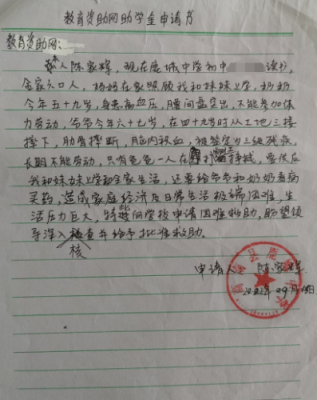 教育资助网助学金申请书
教育资助网:
本人陈家辉,现在鹿城中学初中读书,
全家六口人,妈妈在家照顾我和妹妹上学,奶奶
今年五十九岁,身患高血压,腰间盘突出,不能参加体
力劳动,爷爷今年六十七岁,在四十九岁时从工地三楼
摔下,肋骨摔断,脑内积血,被鉴定为三级残疾,
长期不能劳动,只有爸爸一人在打工挣钱,要供应
我和妹妹上学和全家生活,还要给爷爷和奶奶看病
买药,造成家庭经济及日常生活极端困难,生
活压力巨大,特向学校申请困难救助,盼望领
导深入核查并给予批准救助。
申请人:陈家辉